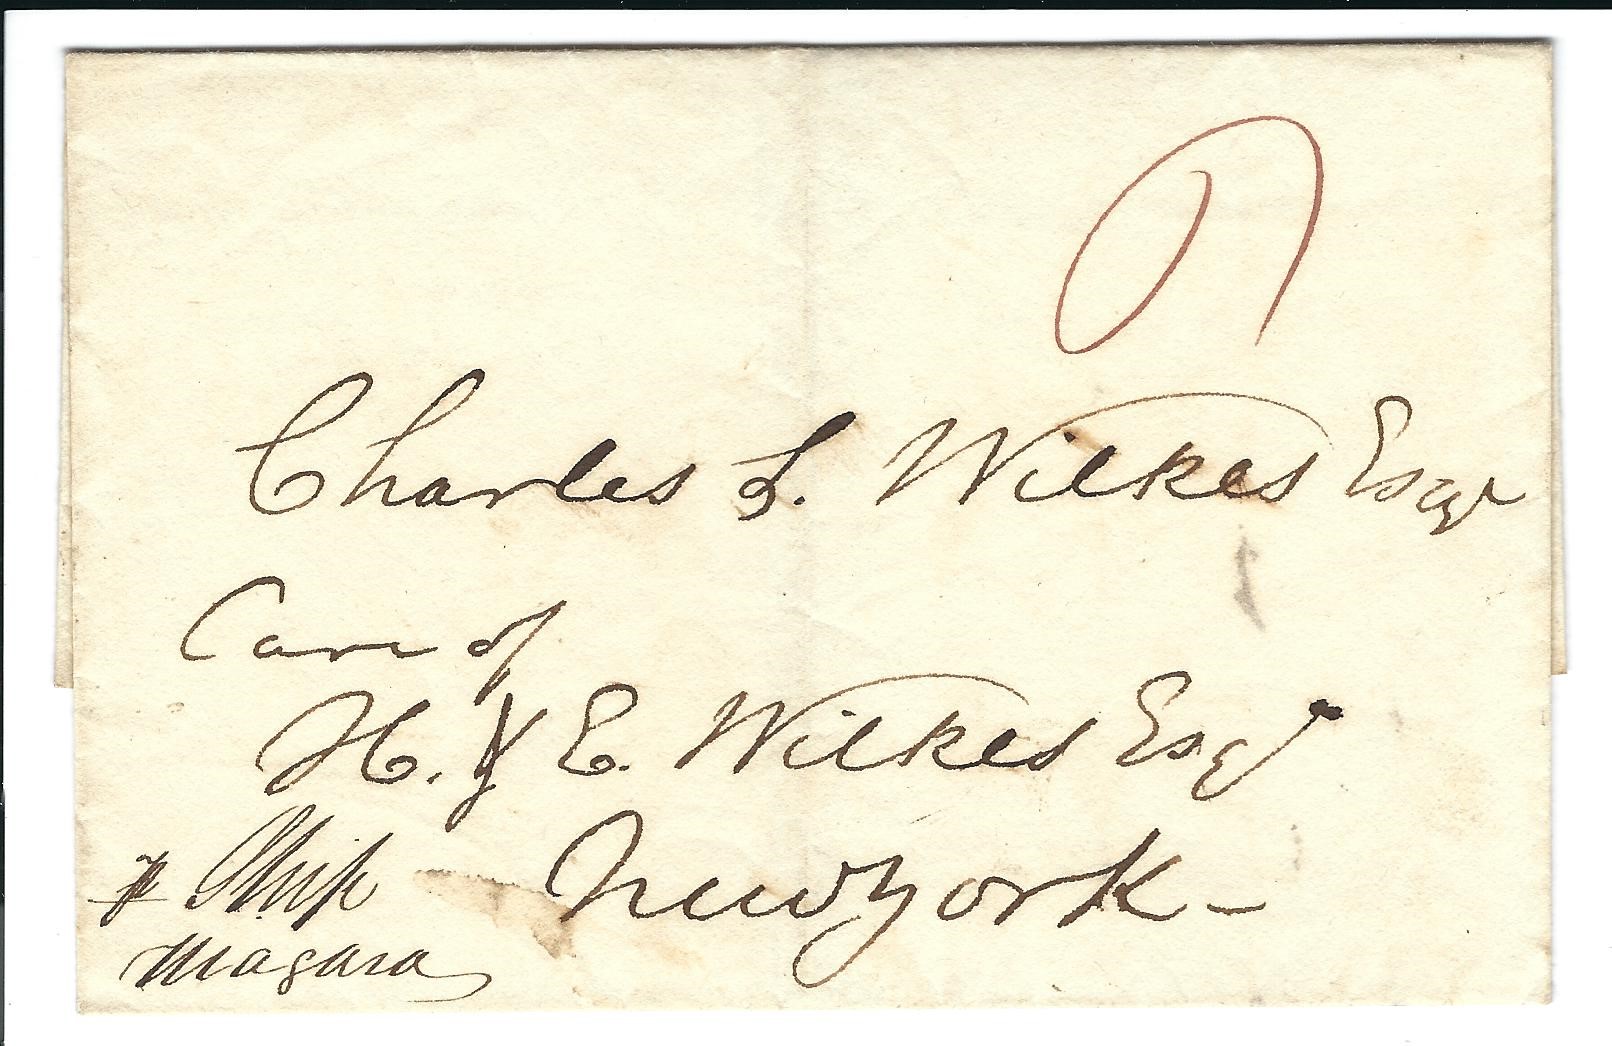 Charles L. Wilkes Esqr
Care of
H. & E. Wilkes Esqr
New York -
pr Ship
Niagara